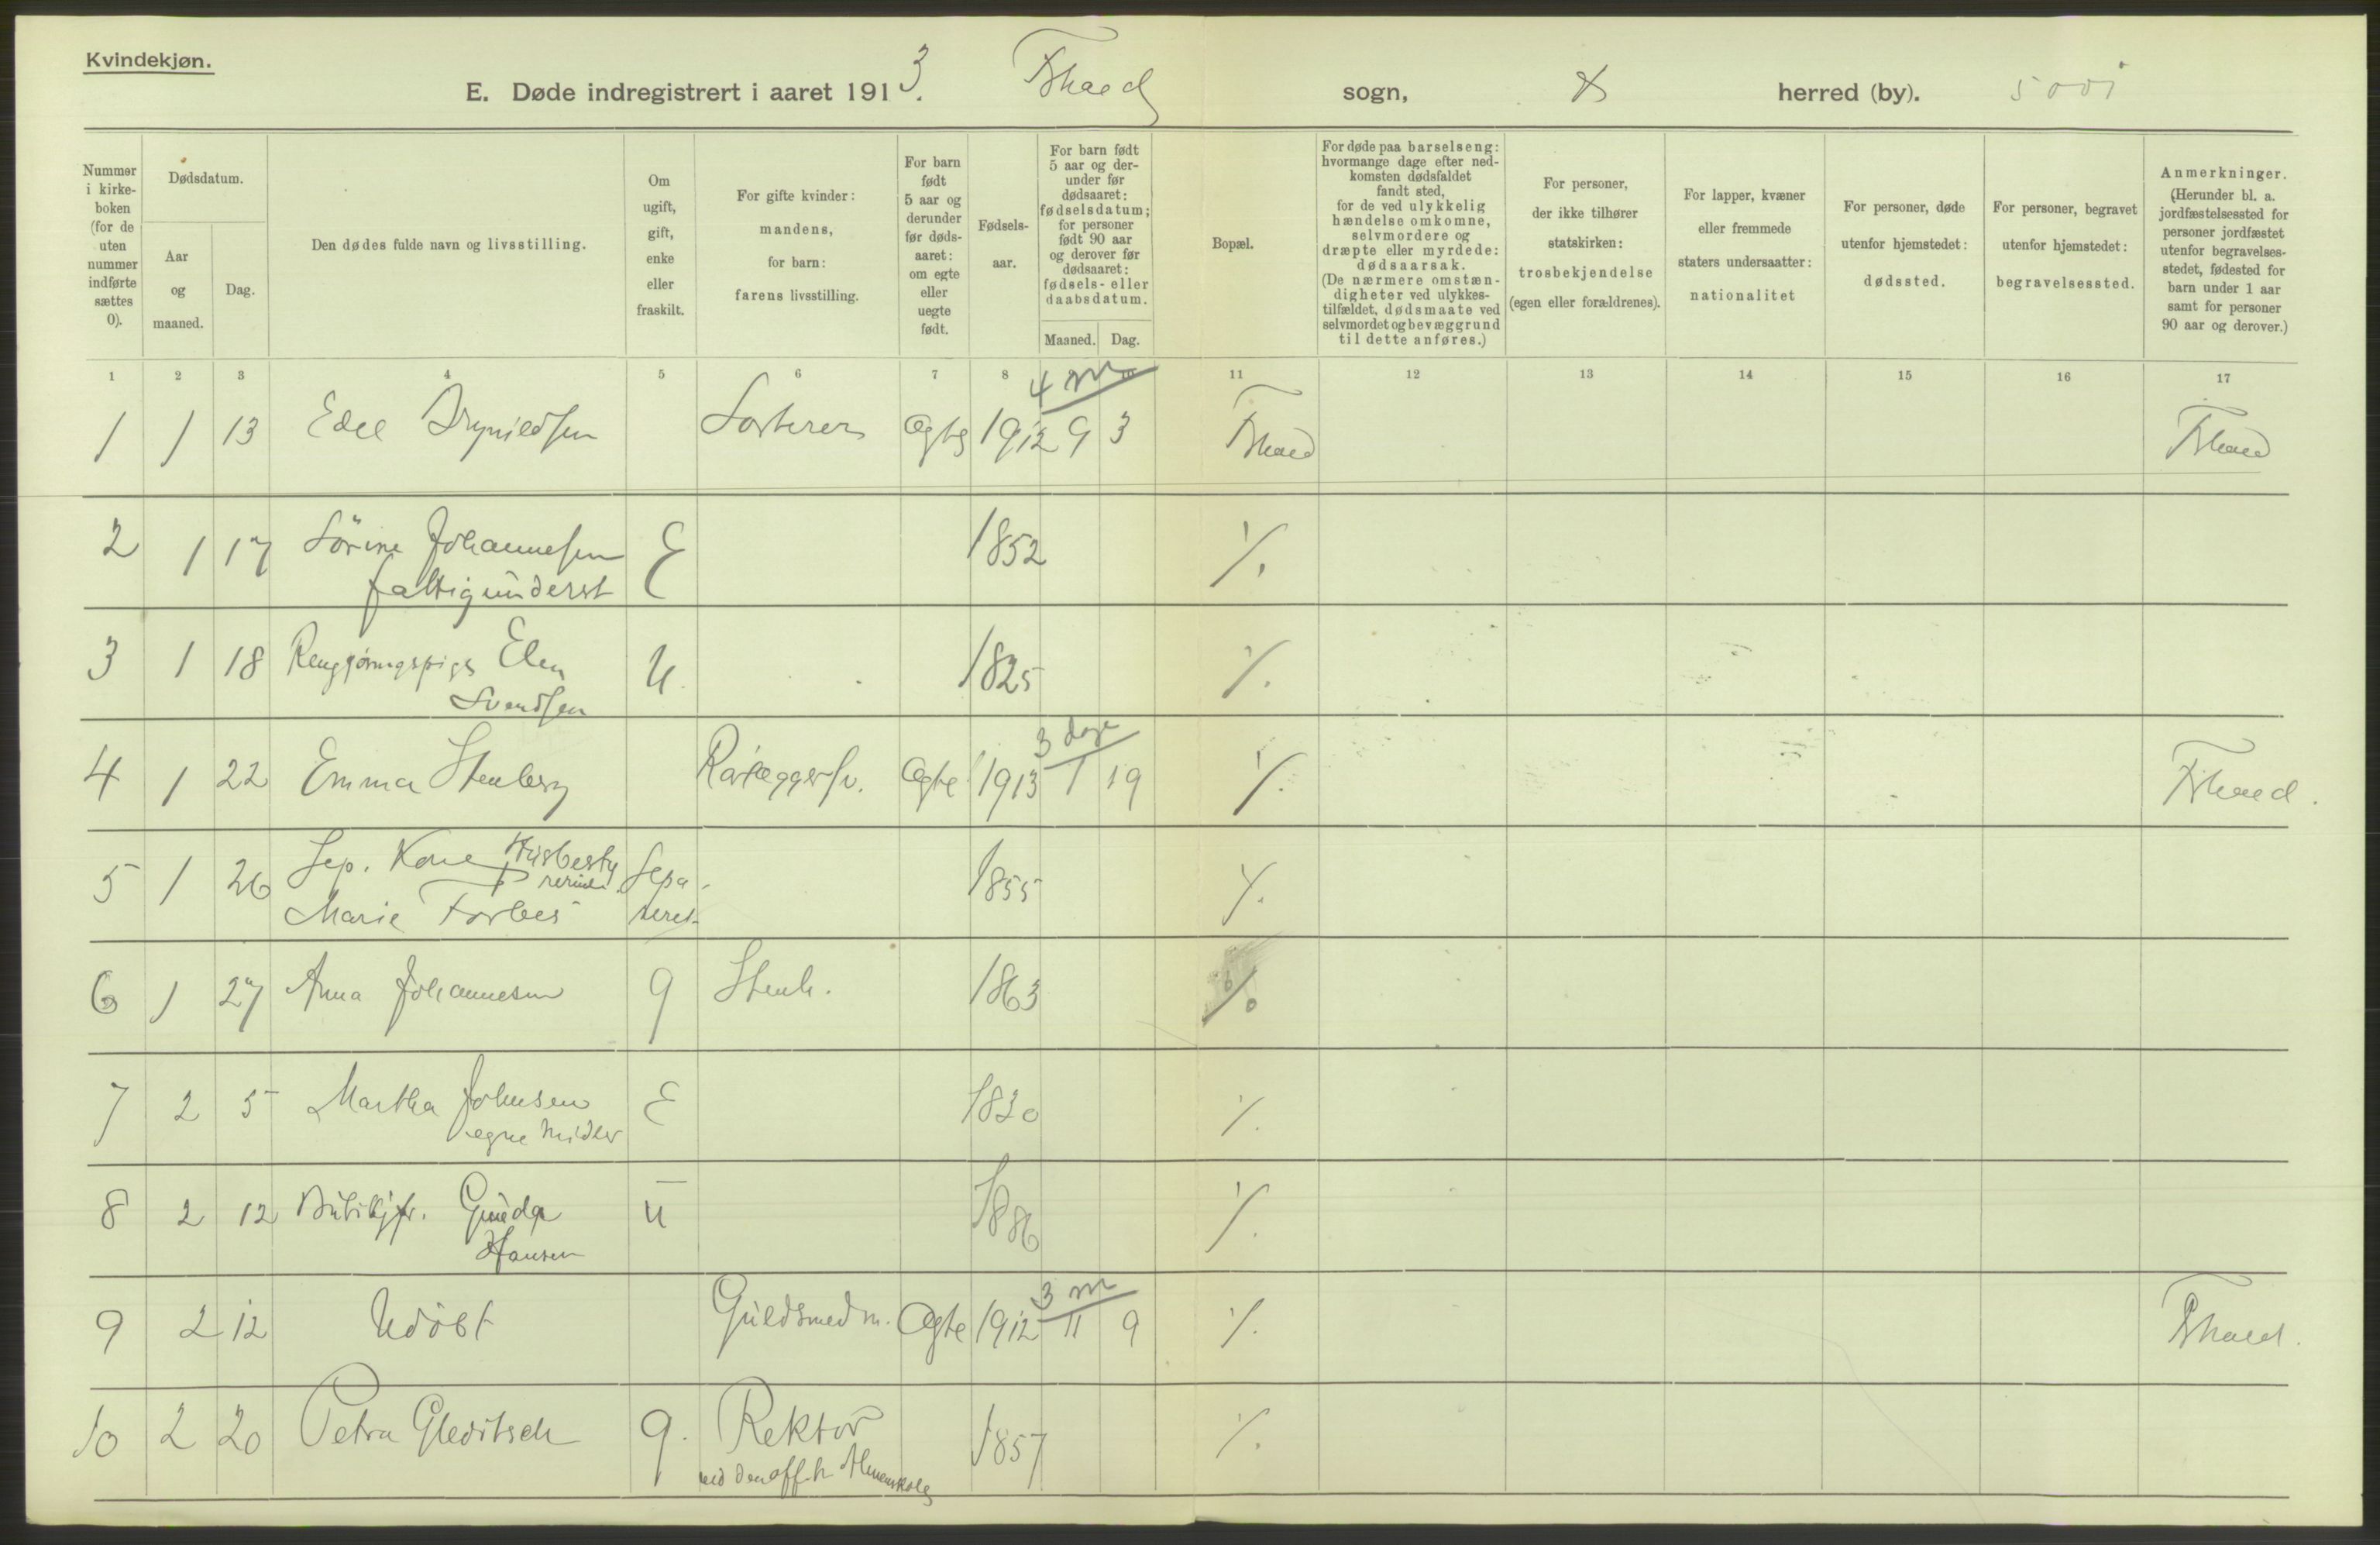 Kvindekjøn.
E. Døde indregistrert i aaret 1913. Fhald sogn, herred (by).
Nummer i kirke-boken (for de uten nummer indførte sættes 0).
Dødsdatum.
Aar og maaned.
Dag.
Den dødes fulde navn og livsstilling.
Om ugift, gift, enke eller fraskilt.
For gifte kvinder: mandens, for barn: farens livsstilling.
For barn født 5 aar og derunder før døds-aaret: om egte eller uegte født.
Fødsels-aar.
For barn født 5 aar og der-under før dødsaaret: fødselsdatum; for personer født 90 aar og derover før dødsaaret: fødsels- eller daabsdatum.
Maaned. Dag.
Bopæl.
For døde paa barselseng: hvormange dage efter ned-komsten dødsfaldet fandt sted, for de ved ulykkelig hændelse omkomne, selvmordere og dræpte eller myrdede: dødsaarsak. (De nærmere omstæn-digheter ved ulykkes-tilfældet, dødsmaate ved selvmordet og bevæggrund til dette anføres.)
For personer, der ikke tilhører statskirken: trosbekjendelse (egen eller forældrenes).
For lapper, kvæner eller fremmede staters undersaatter: nationalitet
For personer, døde utenfor hjemstedet: dødssted.
For personer, begravet utenfor hjemstedet: begravelsessted.
Anmerkninger. (Herunder bl. a. jordfæstelsessted for personer jordfæstet utenfor begravelses-stedet, fødested for barn under 1 aar samt for personer 90 aar og derover.)
1 2 3 4 5 6 7 8 10 11 12 13 14 15 16 17
4 m
1 1 13 Edel Sorterer Ægte 1912 9 3 Fhald Fhald
2 1 17 Sörine Johannesen E 1852 %
fattigunderst
3 1 18 Rengjöringspige Elen U 1825 %
Svendsen
3 dage
4 1 22 Emma Stenberg Ægte 1913 1 19 % Fhald.
5 1 26 Sep. Kone Husbesty Sepa- 1855 %
rerinde
Marie Forbes reret
6 1 27 Anna Johannesen g Stenh. 1863 %
7 2 5 Martha Johnsen E 1830 %
egne Midler
8 2 12 Butikjfr. Gunda U 1886 %
Hansen
3 m
9 2 12 Udöbt Guldsmedm. Ægte 1912 11 9 % Fhald.
10 2 20 Petra Gleditsch g. Rektor 1857 %
ved den off. h. Almenskole